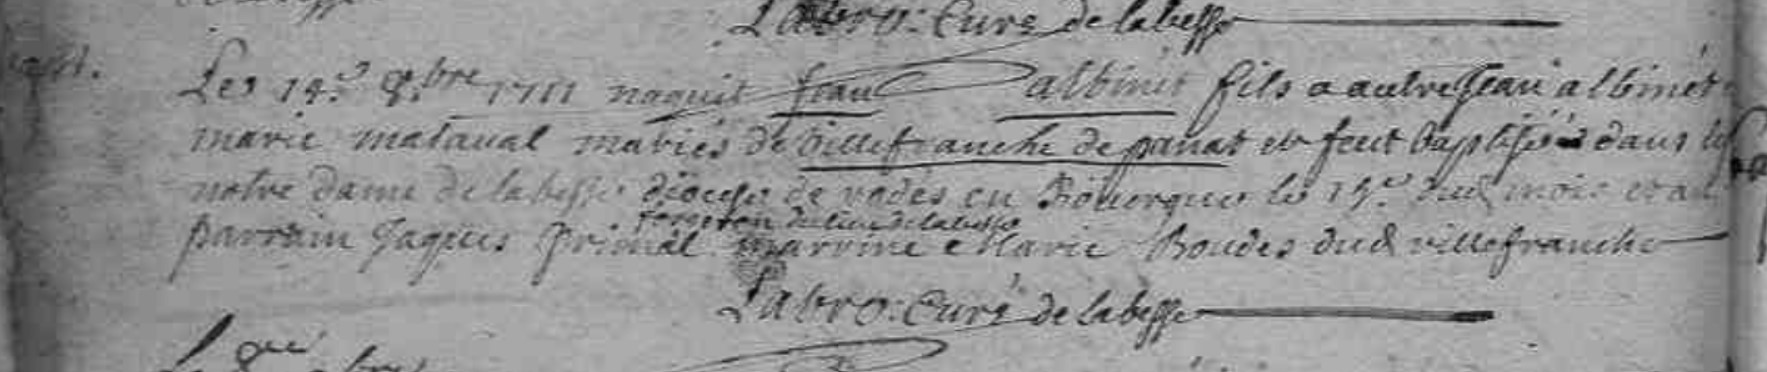 Labro: Curé de labesse
Le 14.e 8.bre 1711 naquit Jean albinet fils a autre Jean albinet
marie mataval mariés de villefranche de panat et feut baptisé dans
notre dame de labesse diocese de rodes en Rouergue le 15.e dud mois et a
forgeron du lieu de labesse
parrain Jaques primal marrine Marie Boudes dud villefranche
Labro: Curé de labesse